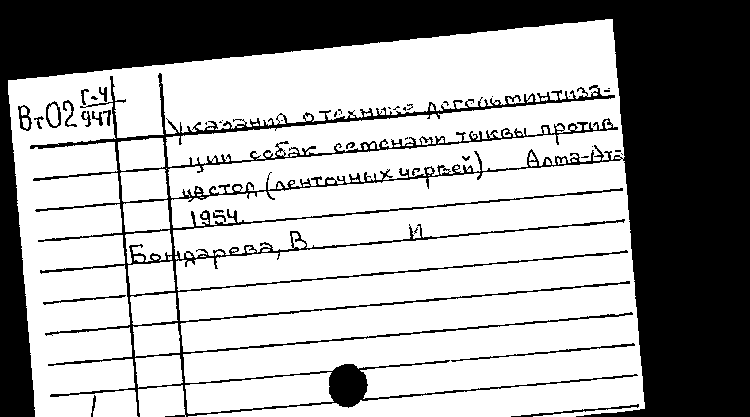 Г-4
Вт02 947
Указания о технике дегельминтиза-
ции собак семенами тыквы против
цестод (ленточных червей). Алма-Ата
1954.
Бондарева, В. И